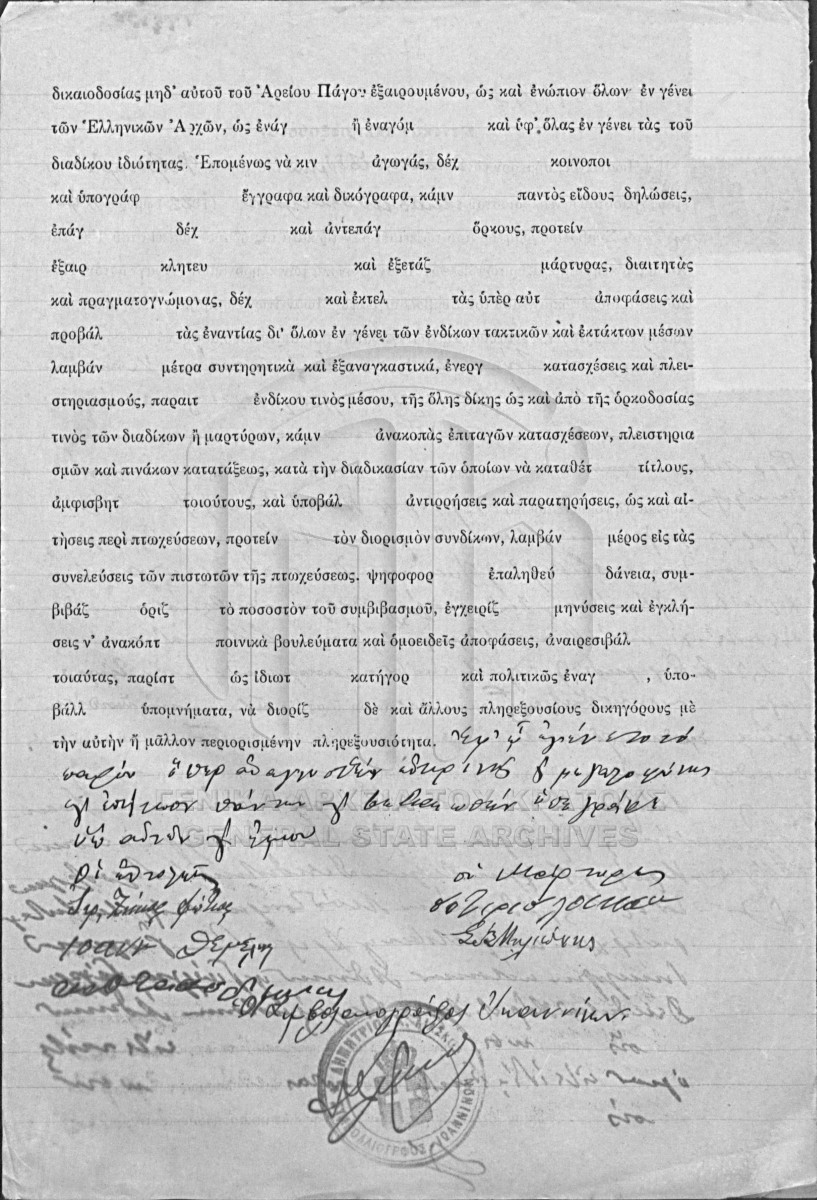 δικαιοδοσίας μηδ’ αὐτοῦ τοῦ Ἀρείου Πάγου ἐξαιρουμένου, ὡς καὶ ἐνώπιον ὅλων ἐν γένει
τῶν Ἑλληνικῶν Ἀρχῶν, ὡς ἐνάγ ἢ ἐναγόμ καὶ ὑφ’ ὅλας ἐν γένει τὰς τοῦ
διαδίκου ἰδιότητας. Ἑπομένως νὰ κιν ἀγωγάς, δέχ κοινοποι
καὶ ὑπογράφ ἔγγραφα καὶ δικόγραφα, κάμν παντὸς εἴδους δηλώσεις,
ἐπάγ δέχ καὶ ἀντεπάγ ὅρκους, προτείν
ἐξαιρ κλητευ καὶ ἐξετάζ μάρτυρας, διαιτητὰς
καὶ πραγματογνώμονας, δέχ καὶ ἐκτελ τὰς ὑπὲρ αὐτ ἀποφάσεις καὶ
προβάλ τὰς ἐναντίας δι’ ὅλων ἐν γένει τῶν ἐνδίκων τακτικῶν καὶ ἐκτάκτων μέσων
λαμβάν μέτρα συντηρητικὰ καὶ ἐξαναγκαστικά, ἐνεργ κατασχέσεις καὶ πλει-
στηριασμούς, παραιτ ἐνδίκου τινὸς μέσου, τῆς ὅλης δίκης ὡς καὶ ἀπὸ τῆς ὁρκοδοσίας
τινὸς τῶν διαδίκων ἢ μαρτύρων, κάμν ἀνακοπὰς ἐπιταγῶν κατασχέσεων, πλειστηρια
σμῶν καὶ πινάκων κατατάξεως, κατὰ τὴν διαδικασίαν τῶν ὁποίων νὰ καταθέτ τίτλους,
ἀμφισβητ τοιούτους, καὶ ὑποβάλ ἀντιρρήσεις καὶ παρατηρήσεις, ὡς καὶ αἰ-
τήσεις περὶ πτωχεύσεων, προτείν τὸν διορισμὸν συνδίκων, λαμβάν μέρος εἰς τὰς
συνελεύσεις τῶν πιστωτῶν τῆς πτωχεύσεως. ψηφοφορ ἐπαληθεύ δάνεια, συμ-
βιβάζ ὁρίζ τὸ ποσοστὸν τοῦ συμβιβασμοῦ, ἐγχειρίζ μηνύσεις καὶ ἐγκλή-
σεις ν’ ἀνακόπτ ποινικὰ βουλεύματα καὶ ὁμοειδεῖς ἀποφάσεις, ἀναιρεσιβάλ
τοιαύτας, παρίστ ὡς ἰδιωτ κατήγορ καὶ πολιτικῶς ἐναγ , ὑπο-
βάλλ ὑπομνήματα, νὰ διορίζ δὲ καὶ ἄλλους πληρεξουσίους δικηγόρους μὲ
τὴν αὐτὴν ἢ μᾶλλον περιορισμένην πληρεξουσιότητα. Ἐφ’ ᾧ ἐγένετο τὸ
παρὸν ὅπερ
ΓΕΝΙΚΑ ΑΡΧΕΙΑ ΤΟΥ ΚΡΑΤΟΥΣ
GENERAL STATE ARCHIVES
Οἱ ἐντολεῖς οἱ Μάρτυρες
Ὁ Συμβολαιογράφος Ἰωαννίνων
ΣΥΜΒΟΛΑΙΟΓΡΑΦΟΣ ΙΩΑΝΝΙΝΩΝ